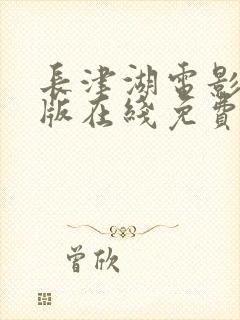 長津湖電影
版在綫免費
曾欣